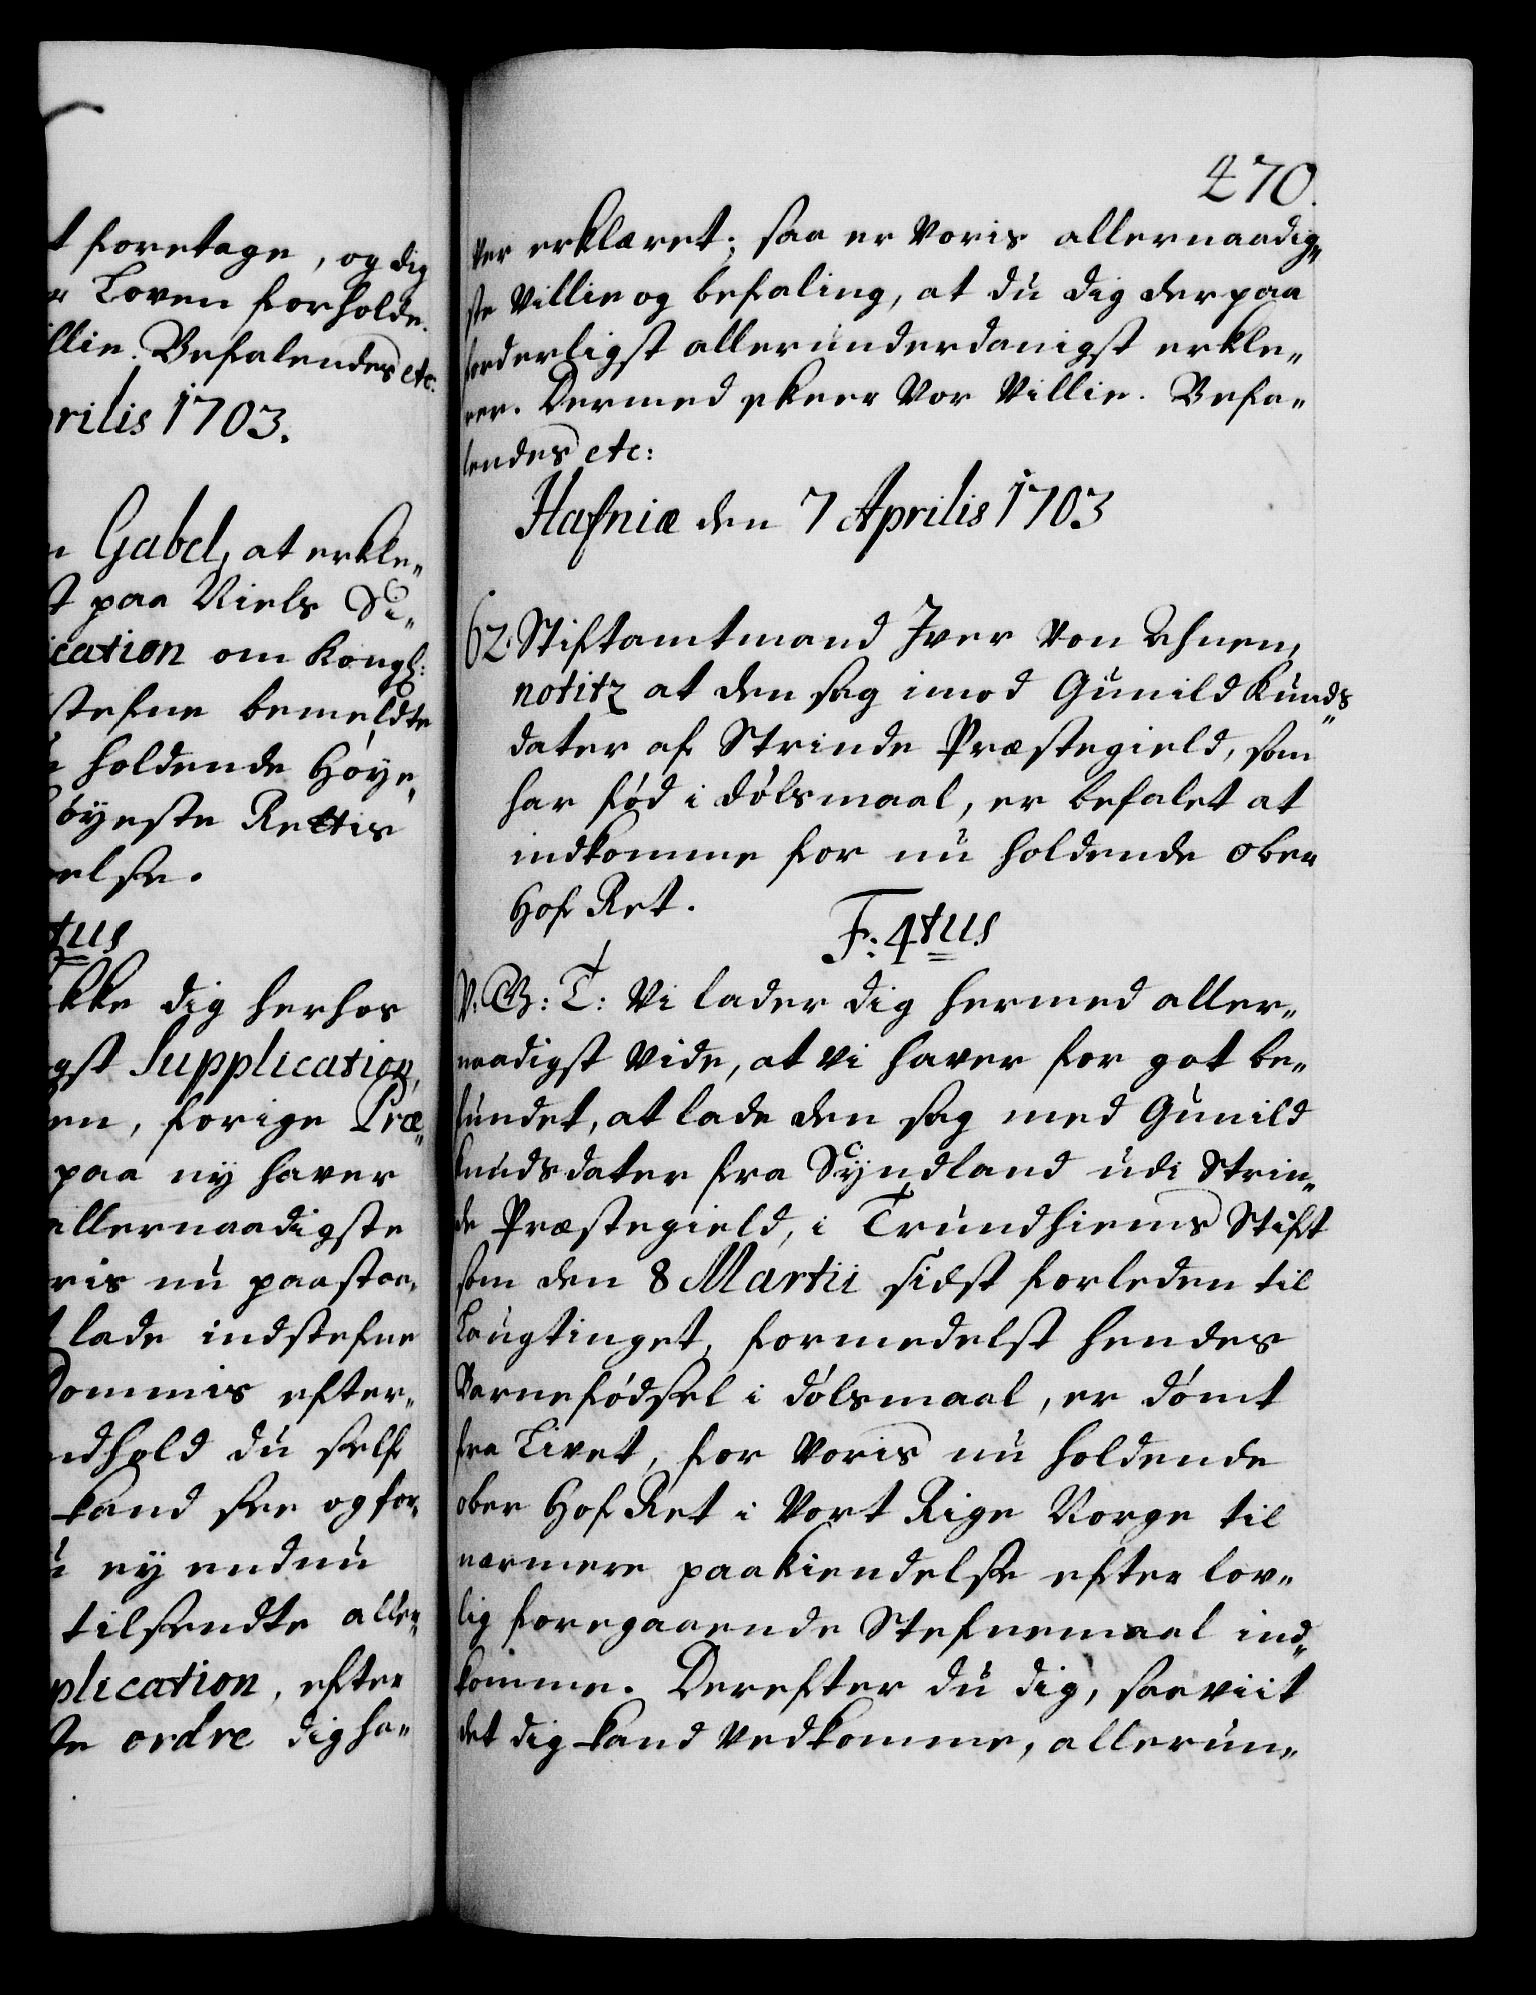 t foretage, og dig
r Loven forholde.
llie. Befalendes etc:
prilis 1703.
n Gabel, at erkle„
st paa Niels Si„
ication om Kongl:
stefne bemeldte
holdende Høye„
øyeste Rettis
else.
tus
ikke dig herhos
gst Supplication,
en, forige Præ„
paa ny haver
allernaadigste
ris nu paastaa„
t lade indstefne
Dommis efter„
ndhold du self
kand see og for„
u ey endnu
tilsendte aller„
plication, efter
te ordre dig ha„
470.
ver erklæret; saa er Voris allernaadig„
ste Villie og befaling, at du dig derpaa
forderligst allerunderdanigst erkle„
rer. Dermed skeer Vor Villie. Befa„
lendes etc:
Hafniæ den 7 Aprilis 1703
62. Stiftamtmand Iver Von Ahnen,
notitz at den sag imod Gunild Knuds„
dater af Strinde Præstegield, som
har fød i dølsmaal, er befalet at
indkomme for nu holdende Ober
Hof Ret.
F: 4tus
V. G: T: Vi lader dig hermed aller„
naadigst vide, at vi haver for got be„
fundet, at lade den sag med Gunild
Knudsdater fra Syndland udi Strin„
de Præstegield, i Trundhiems Stift
som den 8 Martii sidst forleden til
Laugtinget, formedelst hendes
Barnefødsel i dølsmaal, er dømt
fra Livet, for Voris nu holdende
ober Hof Ret i Vort Rige Norge til
nærmere paakiendelse efter lov„
lig foregaaende Stefnemaal ind„
komme. Derefter du dig, saaviit
det dig kand vedkomme, allerun„